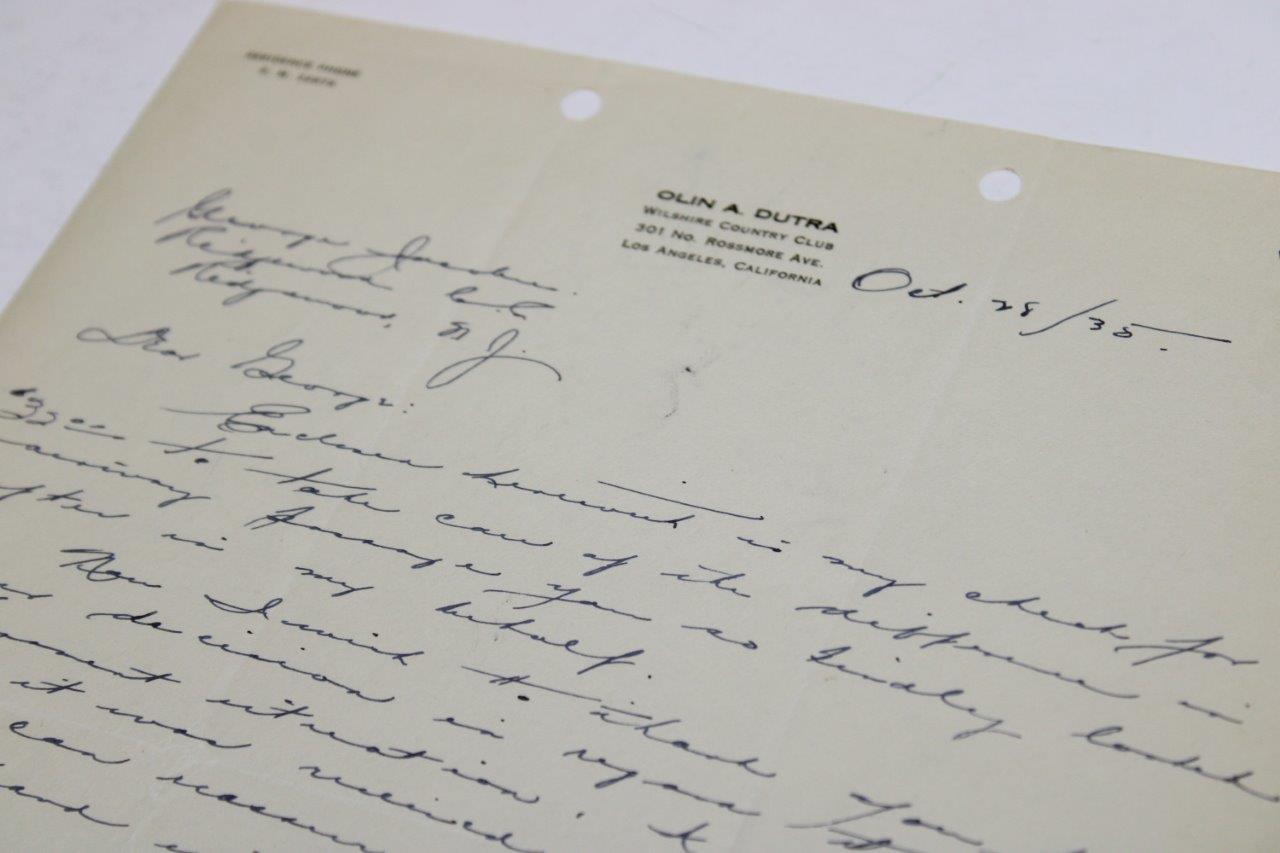 RESIDENCE PHONE
OLIN A. DUTRA
WILSHIRE COUNTRY CLUB
301 NO. ROSSMORE AVE.
LOS ANGELES, CALIFORNIA
Oct. 28/35.
George Jacobus
Ridgewood C.C.
Ridgewood, N.J.
Dear George:
Enclosed herewith is my check for
to take care of the difference in
passage you so kindly looked
after in my behalf.
Now I wish to thank you
decision in regard
situation. It
it was received
can
and